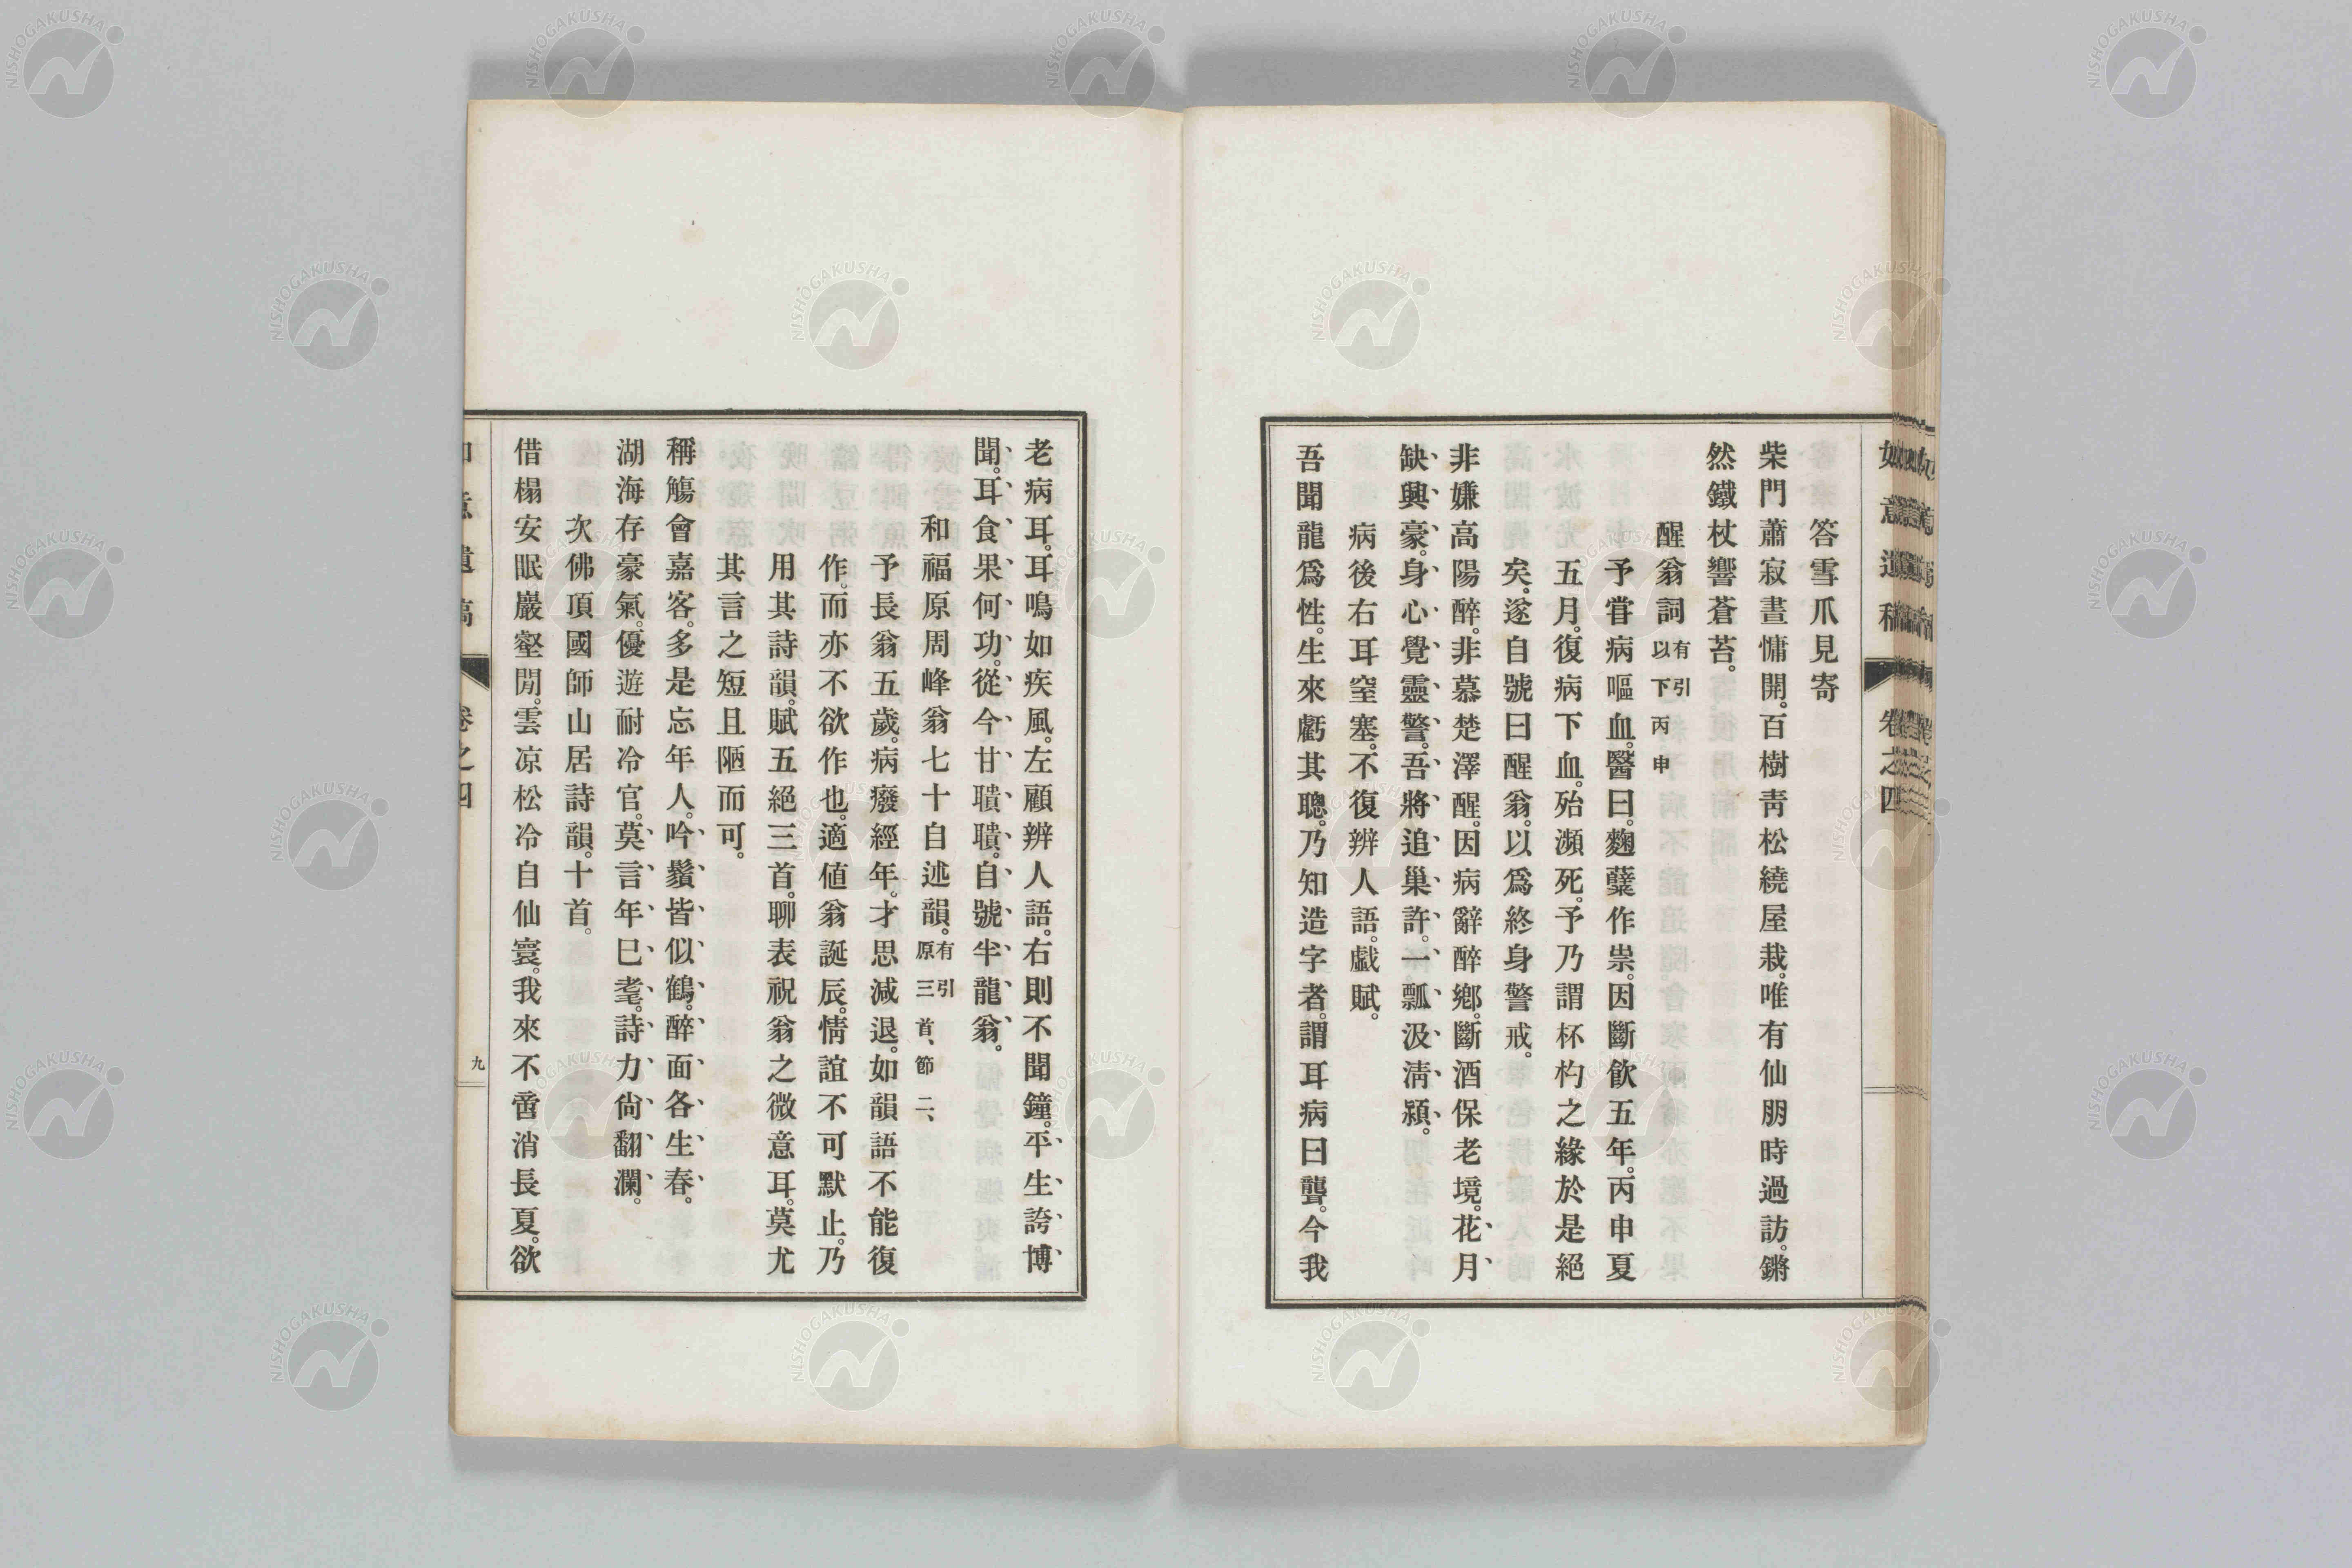 如意遺稿 卷之四
答雪爪見寄
柴門蕭寂晝慵開。百樹靑松繞屋栽。唯有仙朋時過訪。鏘
然鐵杖響蒼苔。
醒翁詞 有引 以下丙申
予甞病嘔血。醫曰。麴蘖作祟。因斷飮五年。丙申夏
五月。復病下血。殆瀕死。予乃謂杯杓之緣於是絕
矣。遂自號曰醒翁。以爲終身警戒。
非嫌高陽醉。非慕楚澤醒。因病辭醉鄕。斷酒保老境。花月
缺興豪。身心覺靈警。吾將追巢許。一瓢汲淸潁。
病後右耳窒塞。不復辨人語。戲賦。
吾聞龍爲性。生來虧其聰。乃知造字者。謂耳病曰聾。今我
老病耳。耳鳴如疾風。左顧辨人語。右則不聞鐘。平生誇博
聞。耳食果何功。從今甘聵聵。自號半龍翁。
和福原周峰翁七十自述韻。有引 原三首、節二、
予長翁五歲。病癈經年。才思減退。如韻語不能復
作。而亦不欲作也。適値翁誕辰。情誼不可默止。乃
用其詩韻。賦五絕三首。聊表祝翁之微意耳。莫尤
其言之短且陋而可。
稱觴會嘉客。多是忘年人。吟鬚皆似鶴。醉面各生春。
湖海存豪氣。優遊耐冷官。莫言年巳耄。詩力尙翻瀾。
次佛頂國師山居詩韻。十首。
借榻安眠巖壑閒。雲凉松冷自仙寰。我來不啻消長夏。欲
如意遺稿 卷之四 九
NISHOGAKUSHA